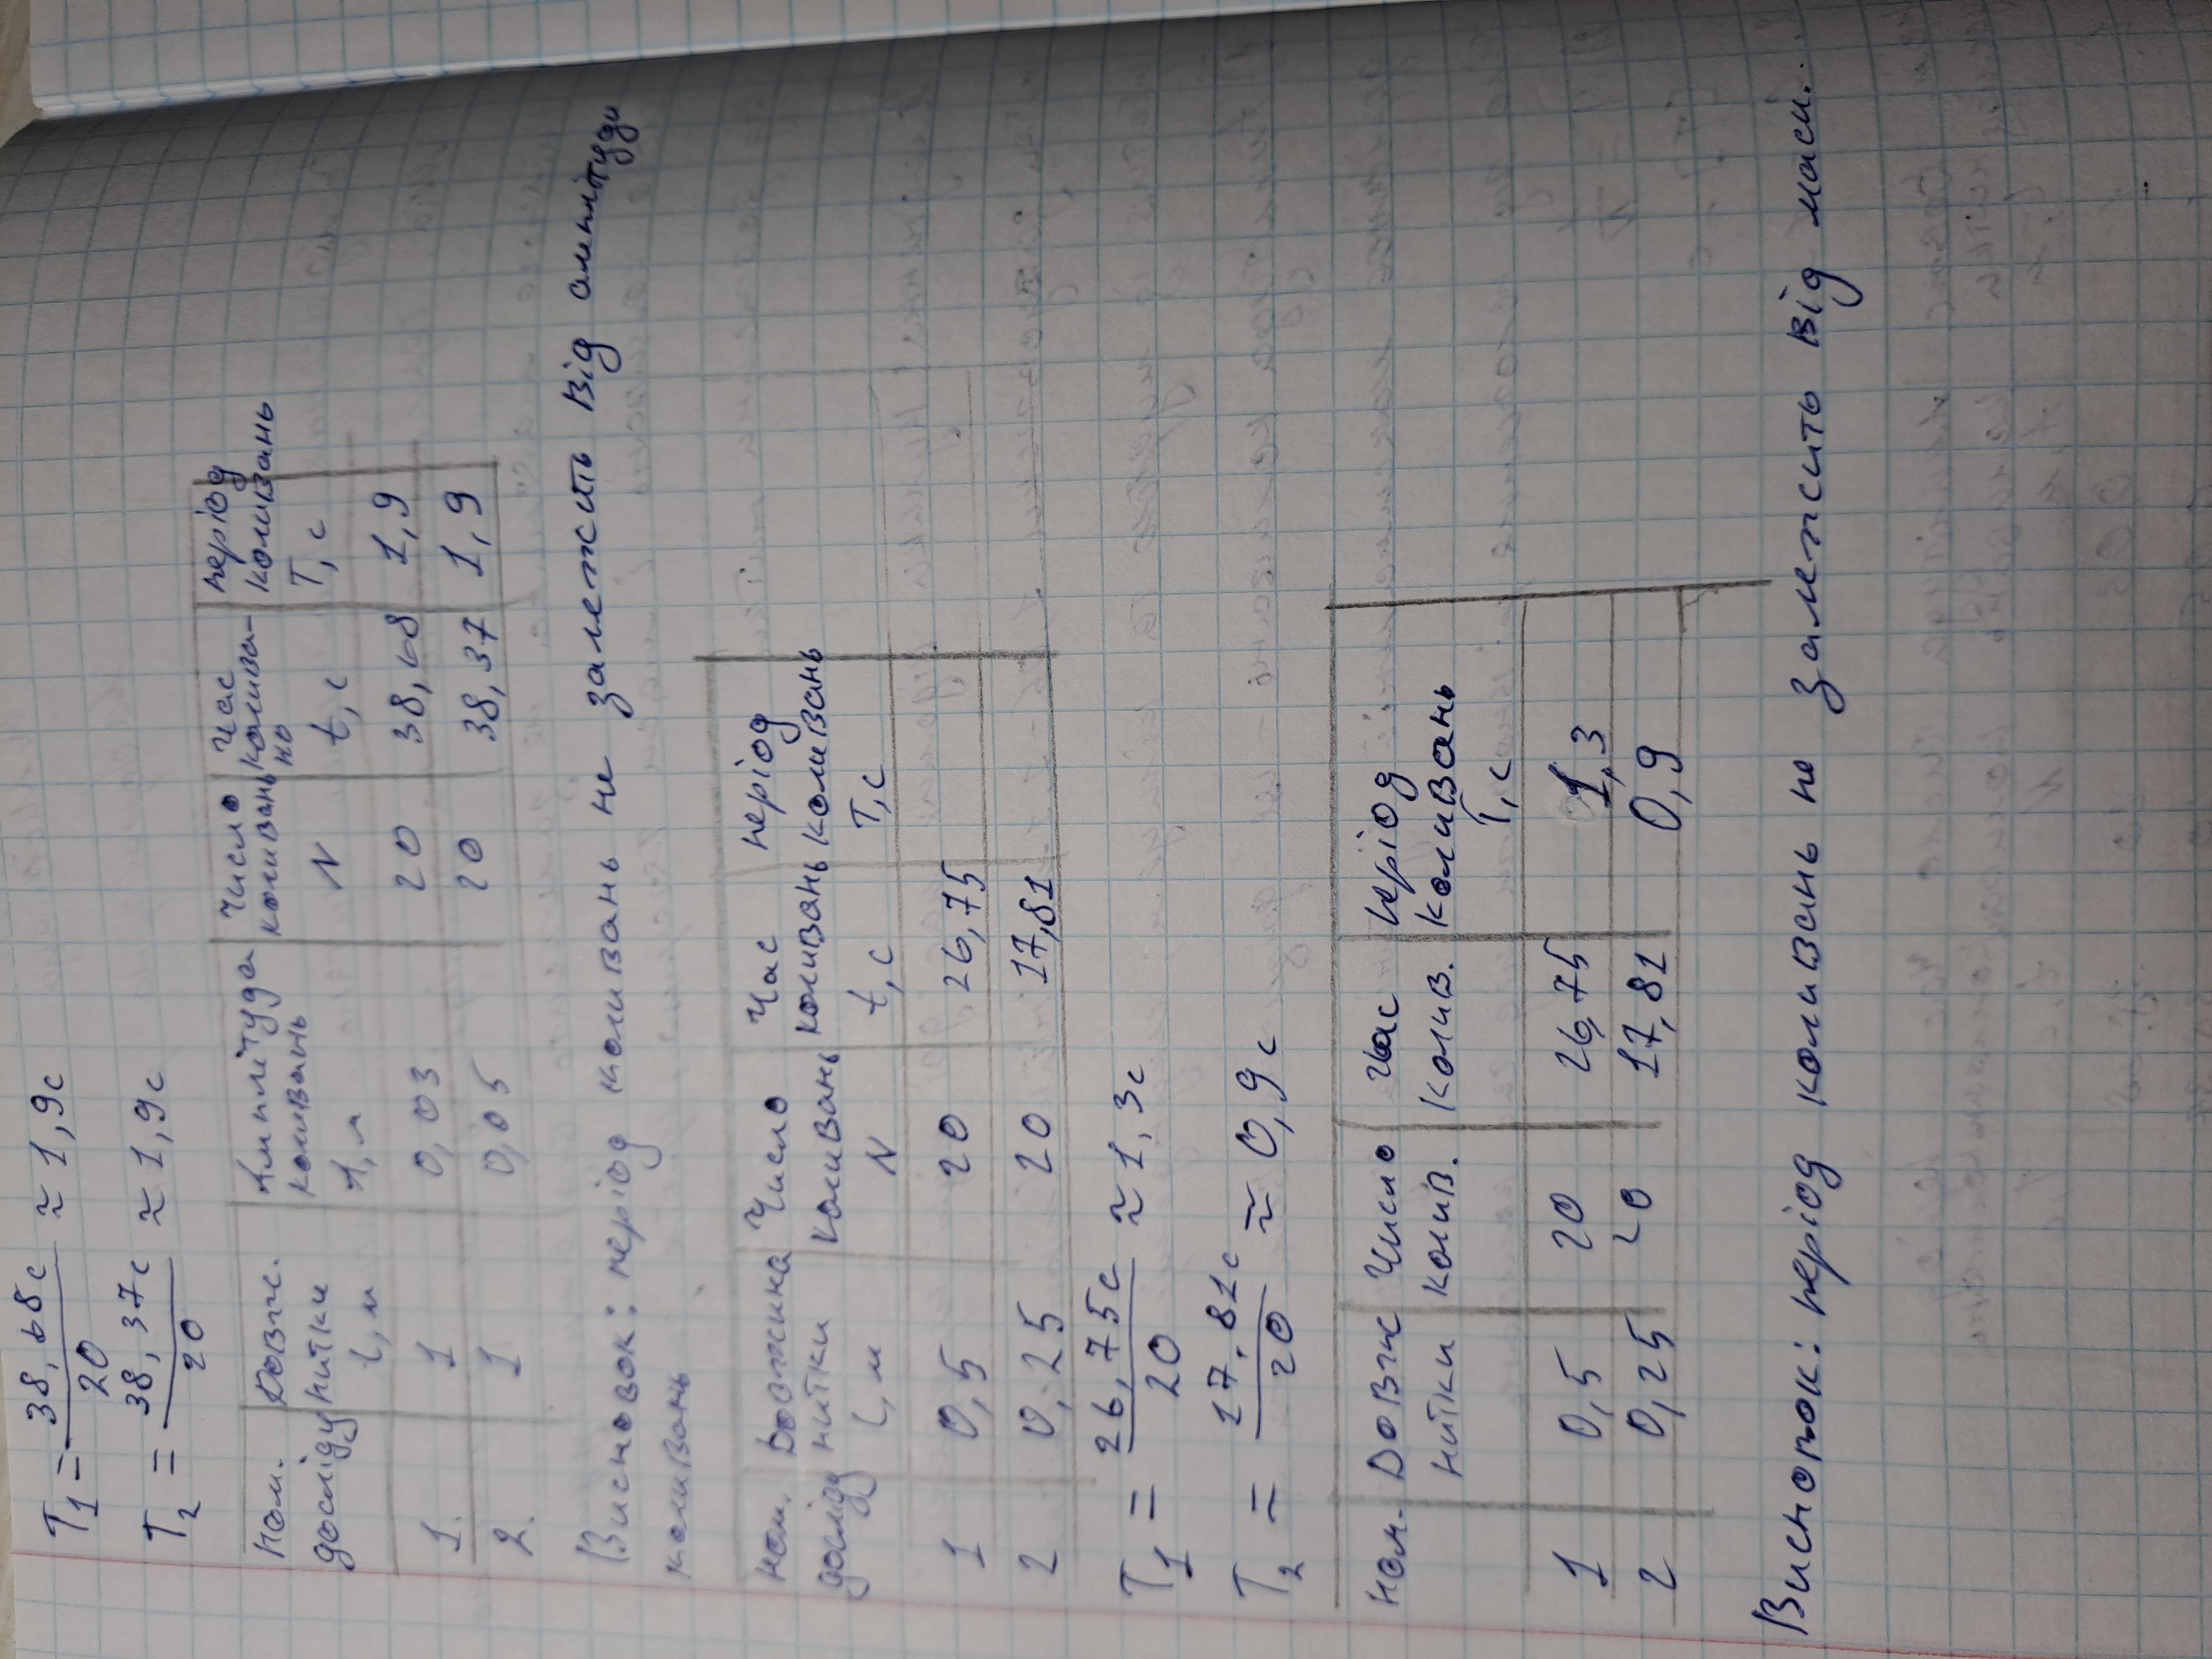 T₁ = 38,68с / 20 ≈ 1,9с
T₂ = 38,37с / 20 ≈ 1,9с
Ном. досліду | Довж. нитки l, м | Амплітуда коливань А, м | Число коливань N | Час коливано t, с | період коливань T, с
1. | 1 | 0,03 | 20 | 38,68 | 1,9
2. | 1 | 0,05 | 20 | 38,37 | 1,9
Висновок: період коливань не залежить від амплітуди
коливань
Ном. досліду | Довжина нитки l, м | Число коливань N | Час коливань t, с | період коливань T, с
1 | 0,5 | 20 | 26,75
2 | 0,25 | 20 | 17,81
T₁ = 26,75с / 20 ≈ 1,3с
T₂ = 17.81с / 20 ≈ 0,9с
Ном. | Довж нитки | Число колив. | Час колив. | Період коливань T, с
1 | 0,5 | 20 | 26,75 | 1,3
2 | 0,25 | 20 | 17,81 | 0,9
Висновок: період коливань не залежить від маси.